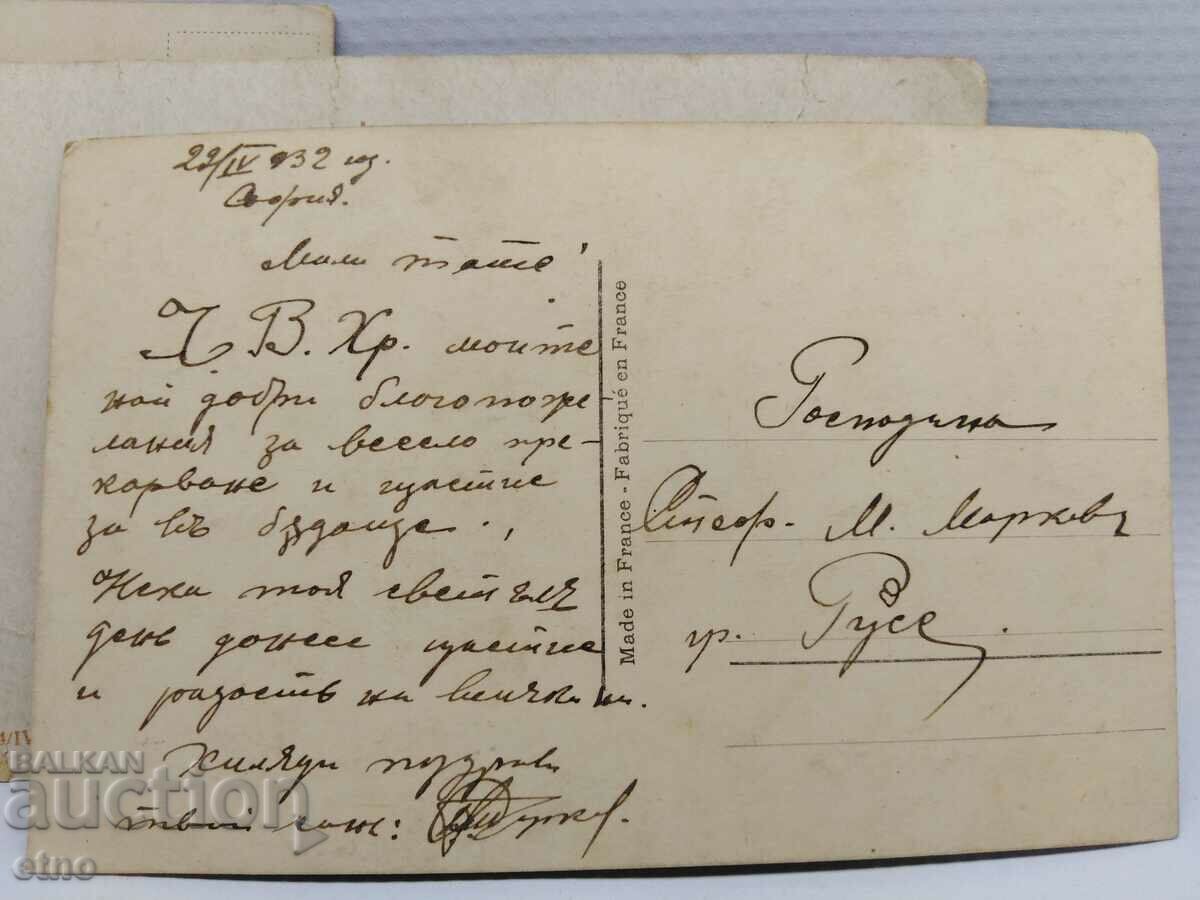 22/IV 932 год.
София.
Мили тате!
Ч. В. Хр. моите
най добри благопоже
лания за весело пре-
карване и щастие
за въ бѫдаще.
Нека тоя светълъ
день донесе щастие
и радость на всички ни.
Хиляди поздрави
твой син:
Made in France - Fabriqué en France
Господина
Стеф. М. Марковъ
гр. Русе
BALKAN
auction
etno